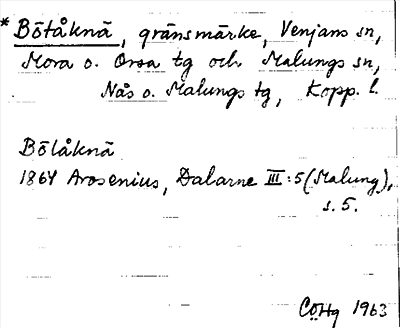 * Bötåknä, gränsmärke, Venjans sn,
Mora o. Orsa tg och Malungs sn,
Nås o. Malungs tg, Kopp. l.
Bötåknä
1864 Arosenius, Dalarne III:5 (Malung),
s. 5.
CÖHg 1963